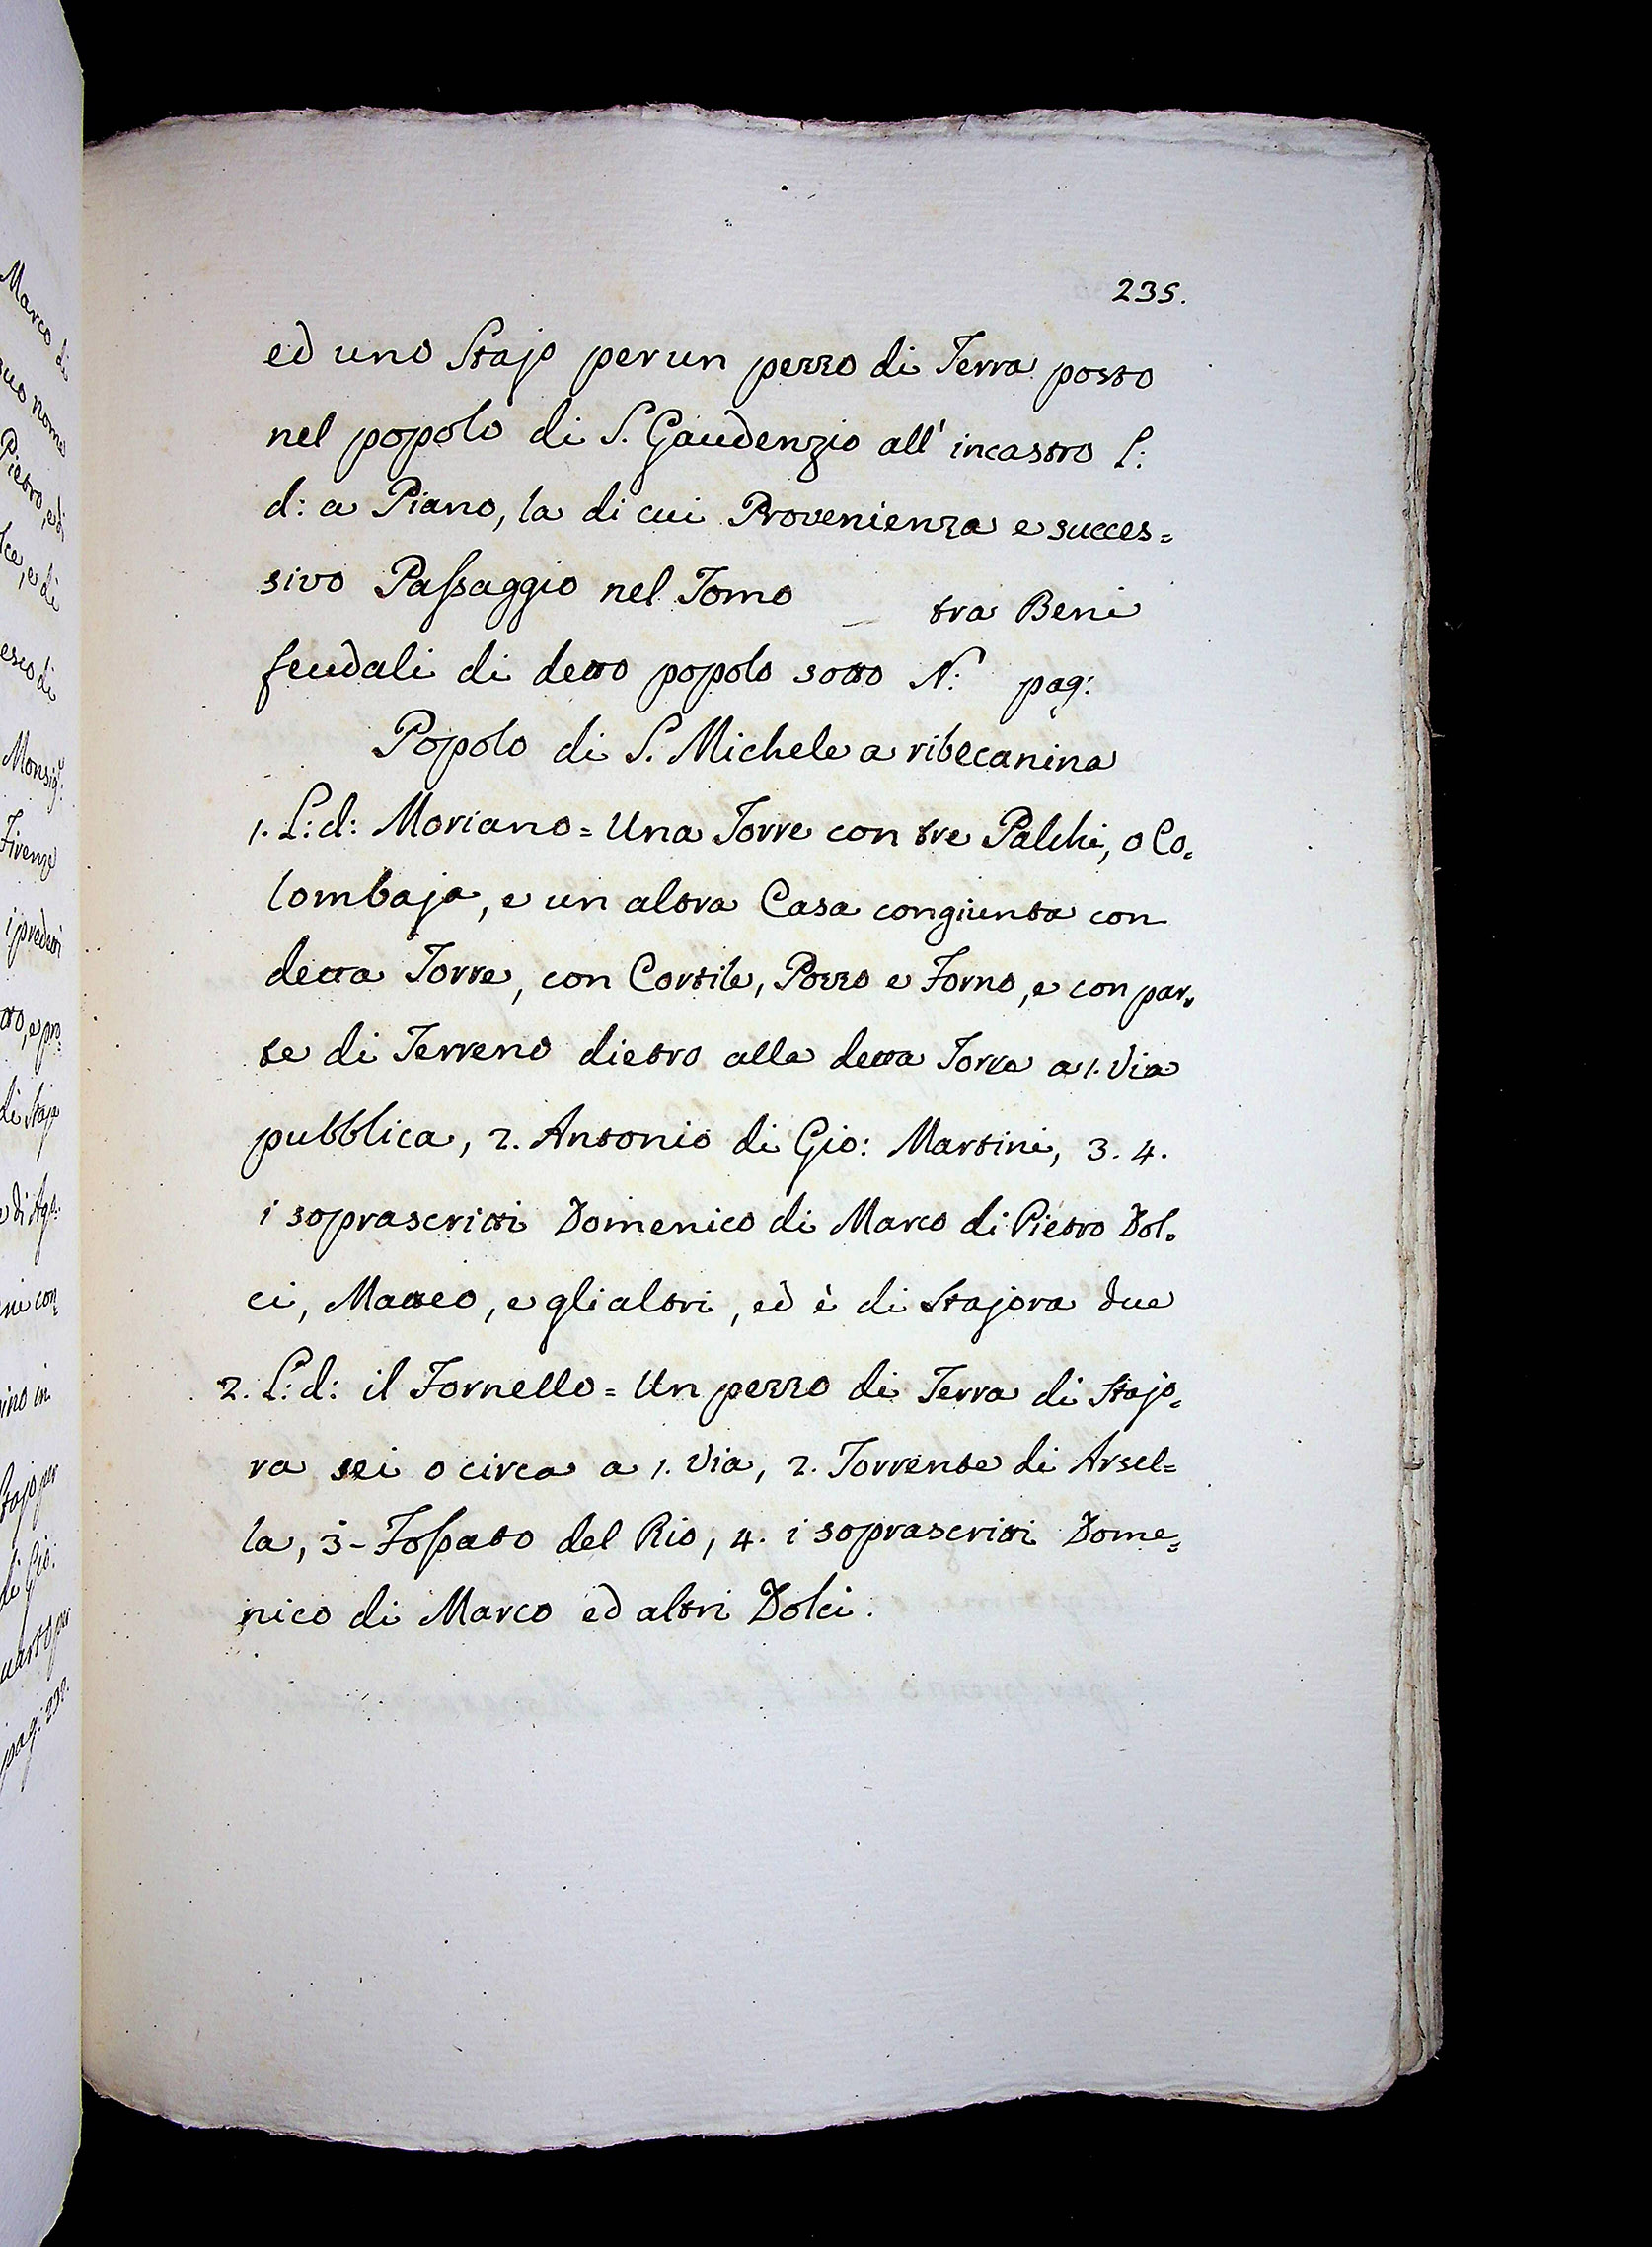 235.
ed uno Stajo per un pezzo di Terra posto
nel popolo di S. Gaudenzio all' incastro L:
d: a Piano, la di cui Provenienza e succes=
sivo Passaggio nel Tomo _ tra Beni
feudali di detto popolo sotto N: pag:
Popolo di S. Michele a ribecanina
1. L: d: Moriano = Una Torre con tre Palchi, o Co=
lombaja, e un altra Casa congiunta con
detta Torre, con Cortile, Pozzo e Forno, e con par=
te di Terreno dietro alla detta Torre a 1. Via
pubblica, 2. Antonio di Gio: Martini, 3. 4.
i soprascritti Domenico di Marco di Pietro Dol=
ci, Matteo, e gli altri, ed è di Stajora due
2. L: d: il Fornello = Un pezzo di Terra di Stajo=
ra sei o circa a 1. Via, 2. Torrente di Arsel=
la, 3- Fossato del Rio, 4. i soprascritti Dome=
nico di Marco ed altri Dolci.
Marco di
Pietro, e di
Monsig.r
Firenze
i predetti
di Stajo
di Gio:
pag: 230.